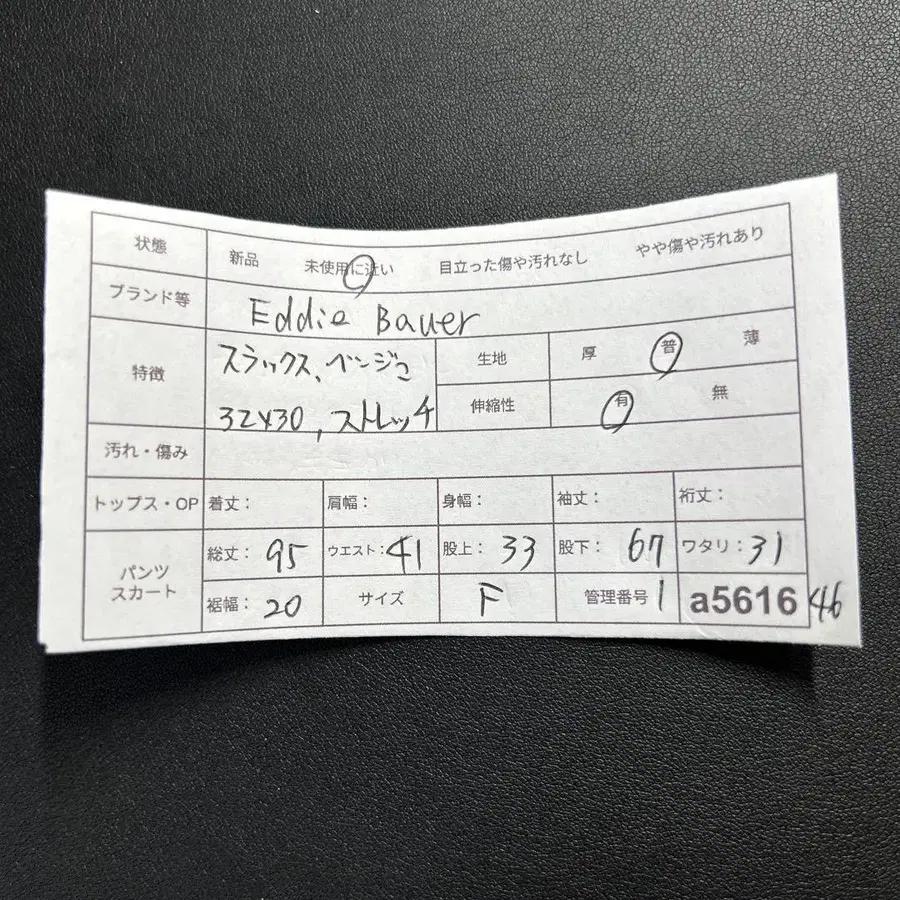 状態 新品 未使用に近い 目立った傷や汚れなし やや傷や汚れあり
ブランド等 Eddie Bauer
特徴 スラックス、ベージュ 生地 厚 普 薄
32×30, ストレッチ 伸縮性 有 無
汚れ・傷み
トップス・OP 着丈: 肩幅: 身幅: 袖丈: 裄丈:
パンツ スカート 総丈: 95 ウエスト: 41 股上: 33 股下: 67 ワタリ: 31
裾幅: 20 サイズ F 管理番号 1 a5616 46